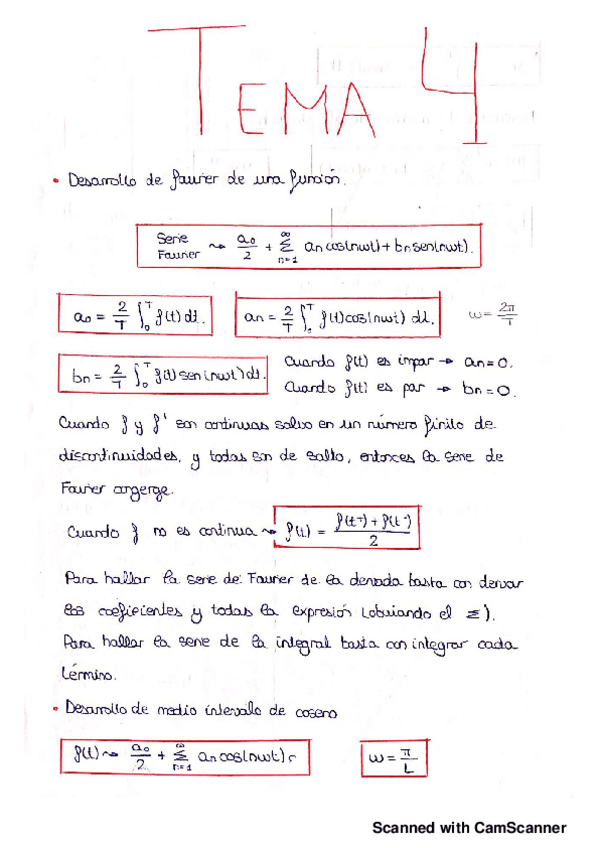 TEMA 4
• Desarrollo de fourier de una función.
Serie Fourier ⇝ a₀/2 + Σ_{n=1}^{∞} an cos(nwt) + bn sen(nwt).
a₀ = 2/T ∫₀ᵀ f(t) dt.
an = 2/T ∫₀ᵀ f(t)cos(nwt) dt.
w = 2π/T
bn = 2/T ∫₀ᵀ f(t) sen(nwt) dt.
Cuando f(t) es impar → an = 0.
Cuando f(t) es par → bn = 0.
Cuando f y f' son continuas salvo en un número finito de
discontinuidades, y todas son de salto, entonces la serie de
Fourier
Cuando f no es continua ⇝ f(t) = f(t⁻) + f(t⁻) / 2
Para hallar la serie de Fourier de la derivada basta con derivar
los coeficientes y todas la expresión (obviando el Σ).
Para hallar la serie de la integral basta con integrar cada
término.
• Desarrollo de medio intervalo de coseno
f(t) ⇝ a₀/2 + Σ_{n=1}^{∞} an cos(nwt)
w = π/L
Scanned with CamScanner